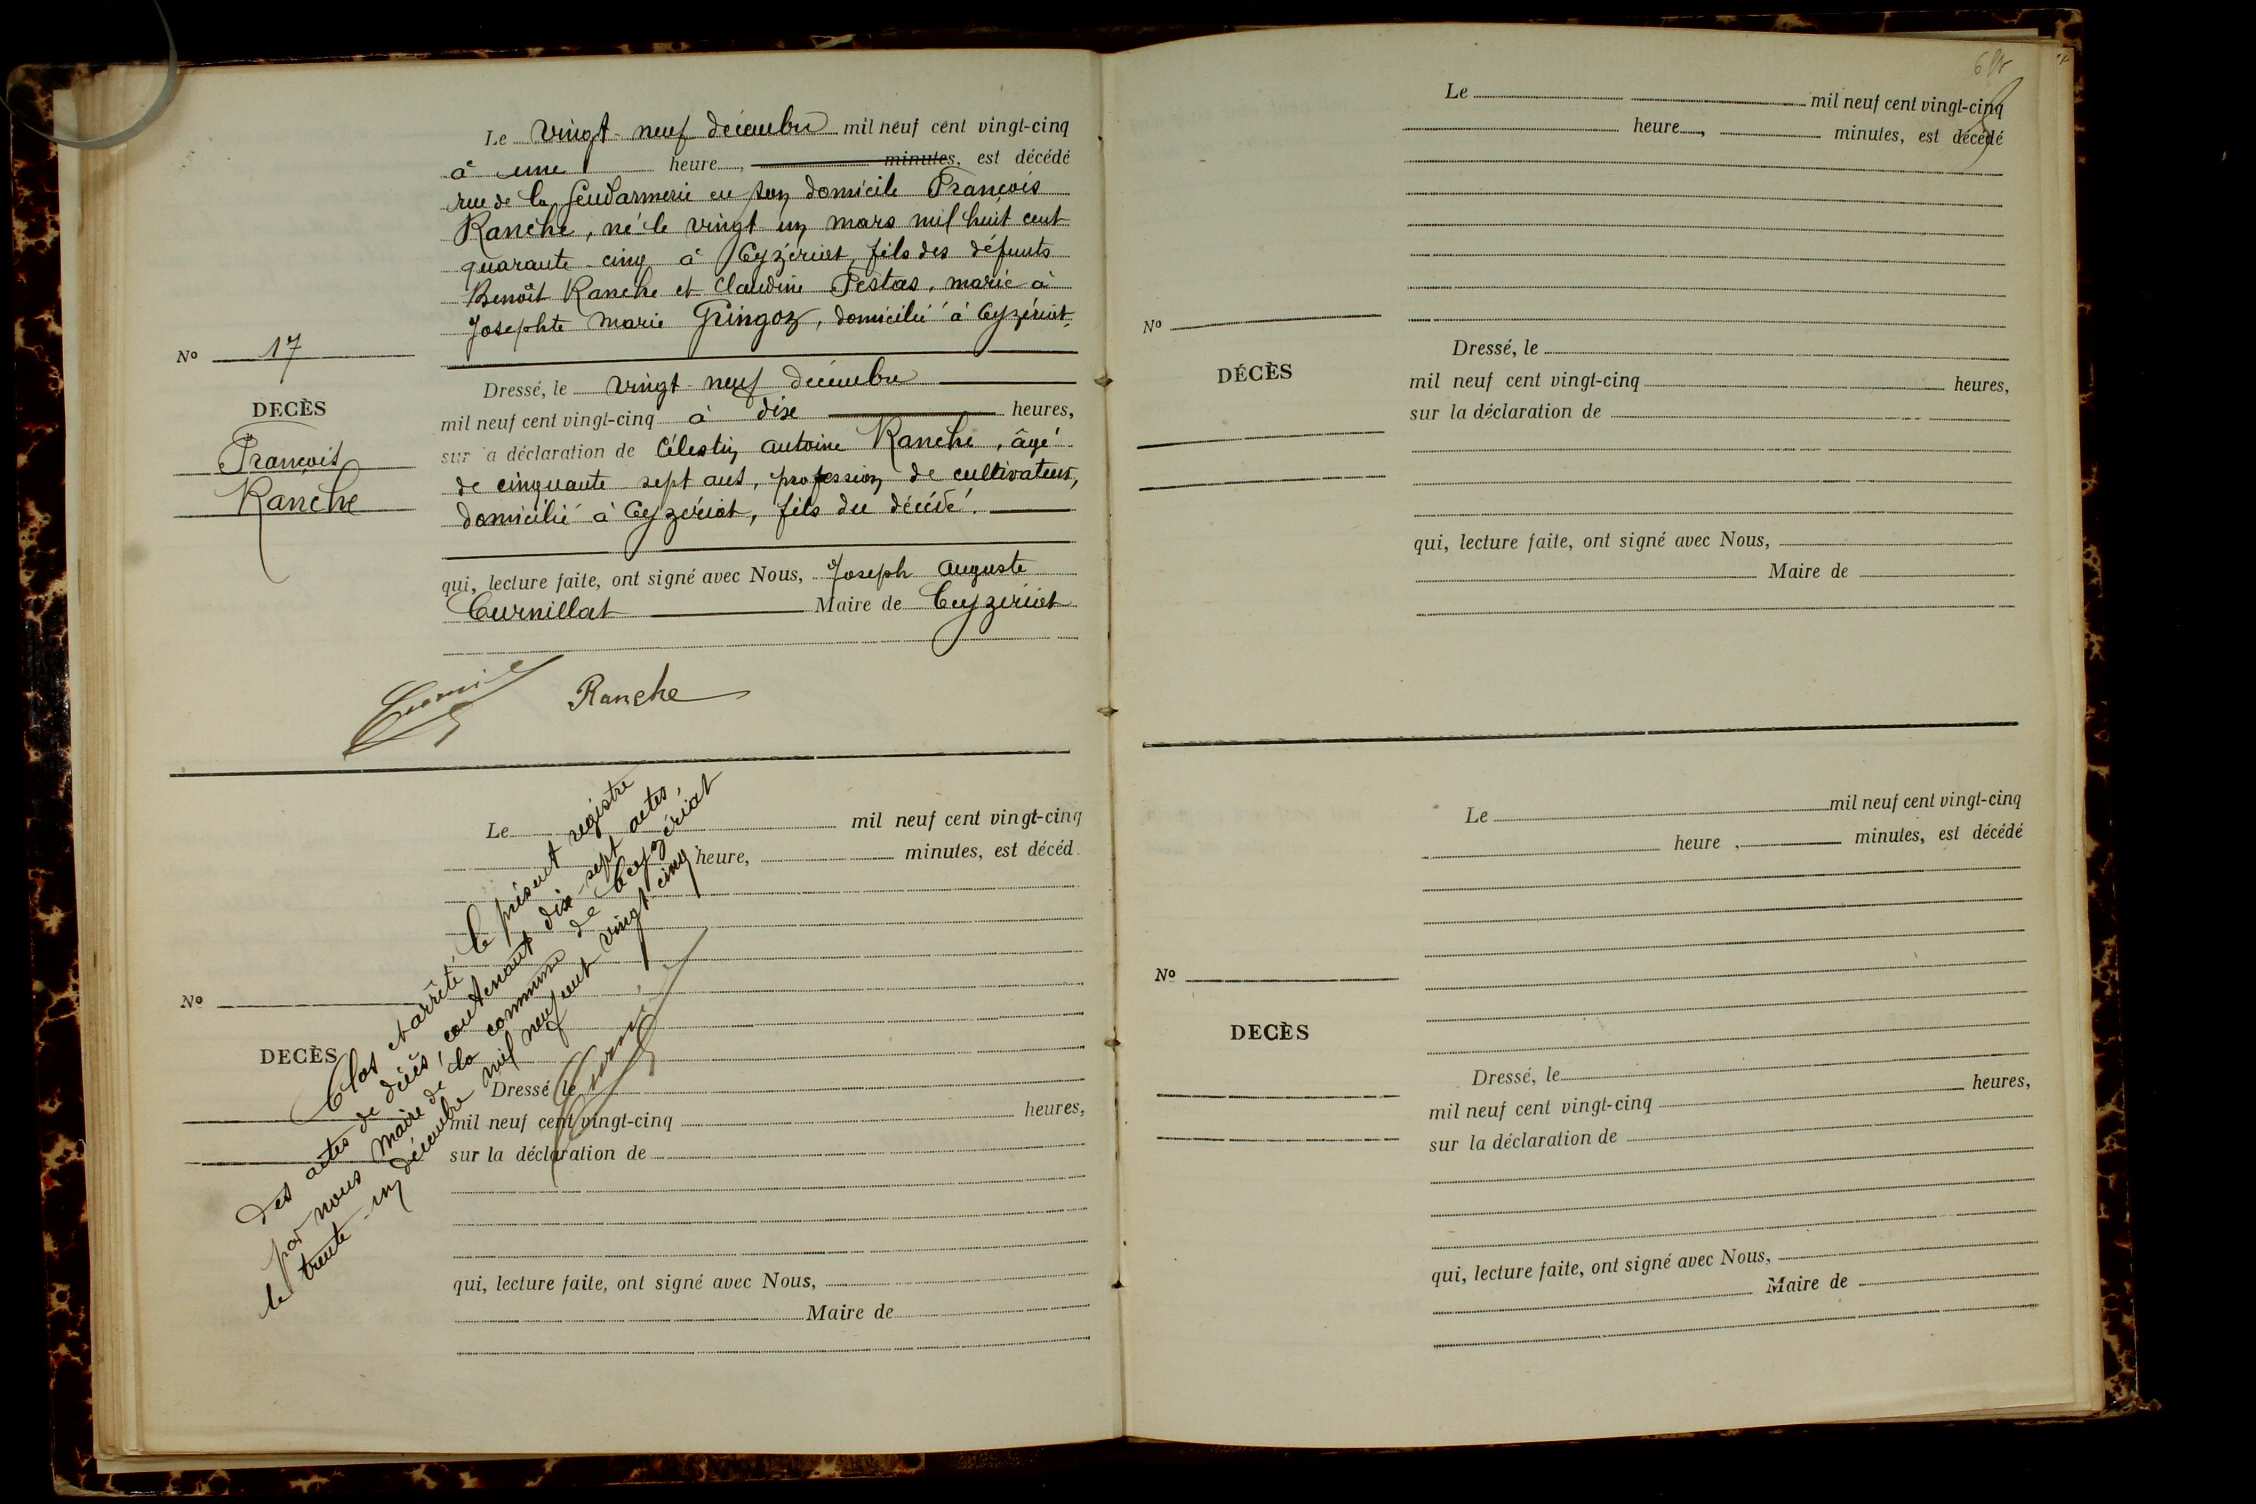 Le vingt-neuf décembre mil neuf cent vingt-cinq
à une heure, minutes, est décédé
rue de la Gendarmerie en son domicile François
Ranche, né le vingt un mars mil huit cent
quarante-cinq à Ceyzériat, fils des défunts
Benoît Ranche et Claudine Pestas, marié à
Josephte Marie Gringoz, domicilié à Ceyzériat.
No 17
DECÈS
François
Ranche
Dressé, le vingt-neuf décembre
mil neuf cent vingt-cinq à dix heures,
sur la déclaration de Célestin Antoine Ranche, âgé
de cinquante sept ans, profession de cultivateur,
domicilié à Ceyzériat, fils du décédé.
qui, lecture faite, ont signé avec Nous, Joseph Auguste
Curnillat Maire de Ceyzériat
Ranche
Le mil neuf cent vingt-cinq
heure, minutes, est décéd
No
DECÈS
Clos et arrêté le présent registre
des actes de décès, contenant dix-sept actes,
par nous Maire de la commune de Ceyzériat
le trente-un décembre mil neuf cent vingt cinq
Dressé le
mil neuf cent vingt-cinq heures,
sur la déclaration de
qui, lecture faite, ont signé avec Nous,
Maire de
Le mil neuf cent vingt-cinq
heure, minutes, est décédé
No
DÉCÈS
Dressé, le
mil neuf cent vingt-cinq heures,
sur la déclaration de
qui, lecture faite, ont signé avec Nous,
Maire de
Le mil neuf cent vingt-cinq
heure, minutes, est décédé
No
DECÈS
Dressé, le
mil neuf cent vingt-cinq heures,
sur la déclaration de
qui, lecture faite, ont signé avec Nous,
Maire de